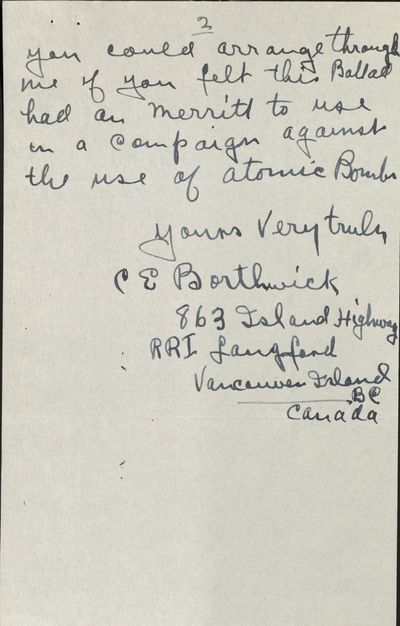 2
you could arrange through
me if you felt this Ballad
had an Merritt to use
in a Campaign against
the use of atomic Bombs
yours Very truly
C E Borthwick
863 Island Highway
RRI Langford
Vancouver Island
BC
Canada